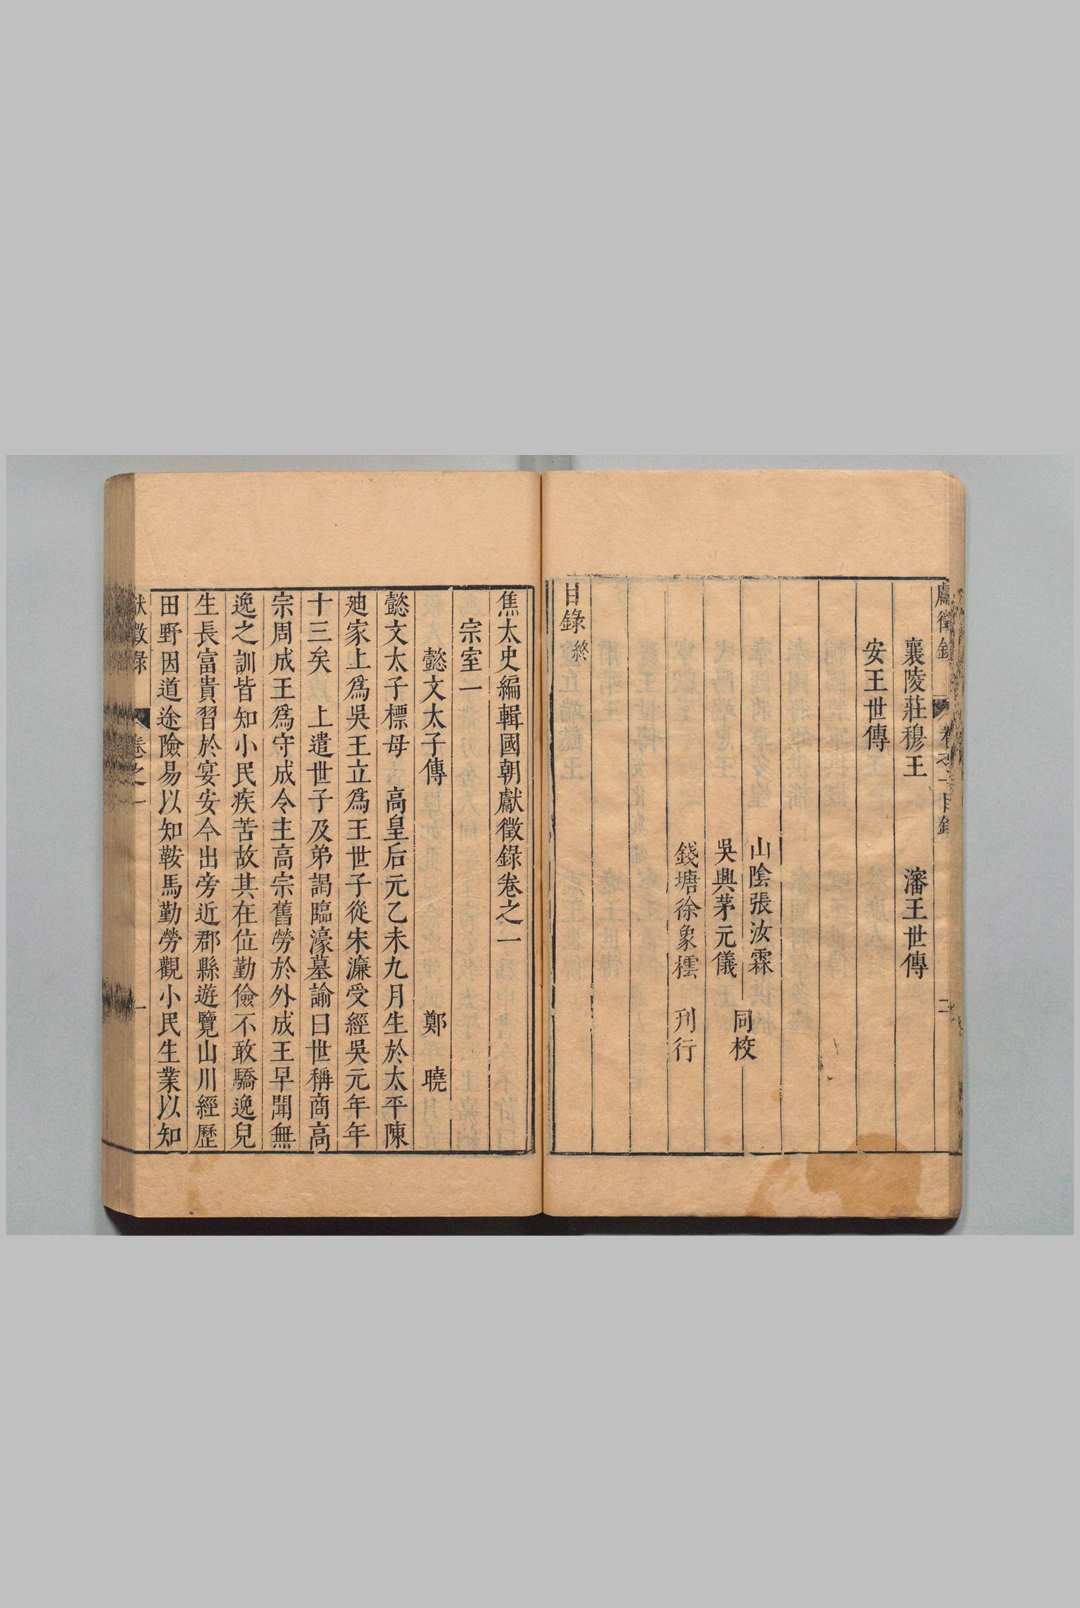 獻徵錄 卷之一目錄 二
襄陵莊穆王 瀋王世傳
安王世傳
山陰張汝霖
吳興茅元儀 同校
錢塘徐象橒 刊行
目錄終
焦太史編輯國朝獻徵錄卷之一
宗室一
懿文太子傳 鄭曉
懿文太子標母 高皇后元乙未九月生於太平陳
廸家上爲吳王立爲王世子從宋濂受經吳元年年
十三矣 上遣世子及弟謁臨濠墓諭曰世稱商高
宗周成王爲守成令主高宗舊勞於外成王早聞無
逸之訓皆知小民疾苦故其在位勤儉不敢驕逸兒
生長富貴習於宴安今出旁近郡縣遊覽山川經歷
田野因道途險易以知鞍馬勤勞觀小民生業以知
獻徵錄 卷之一 一